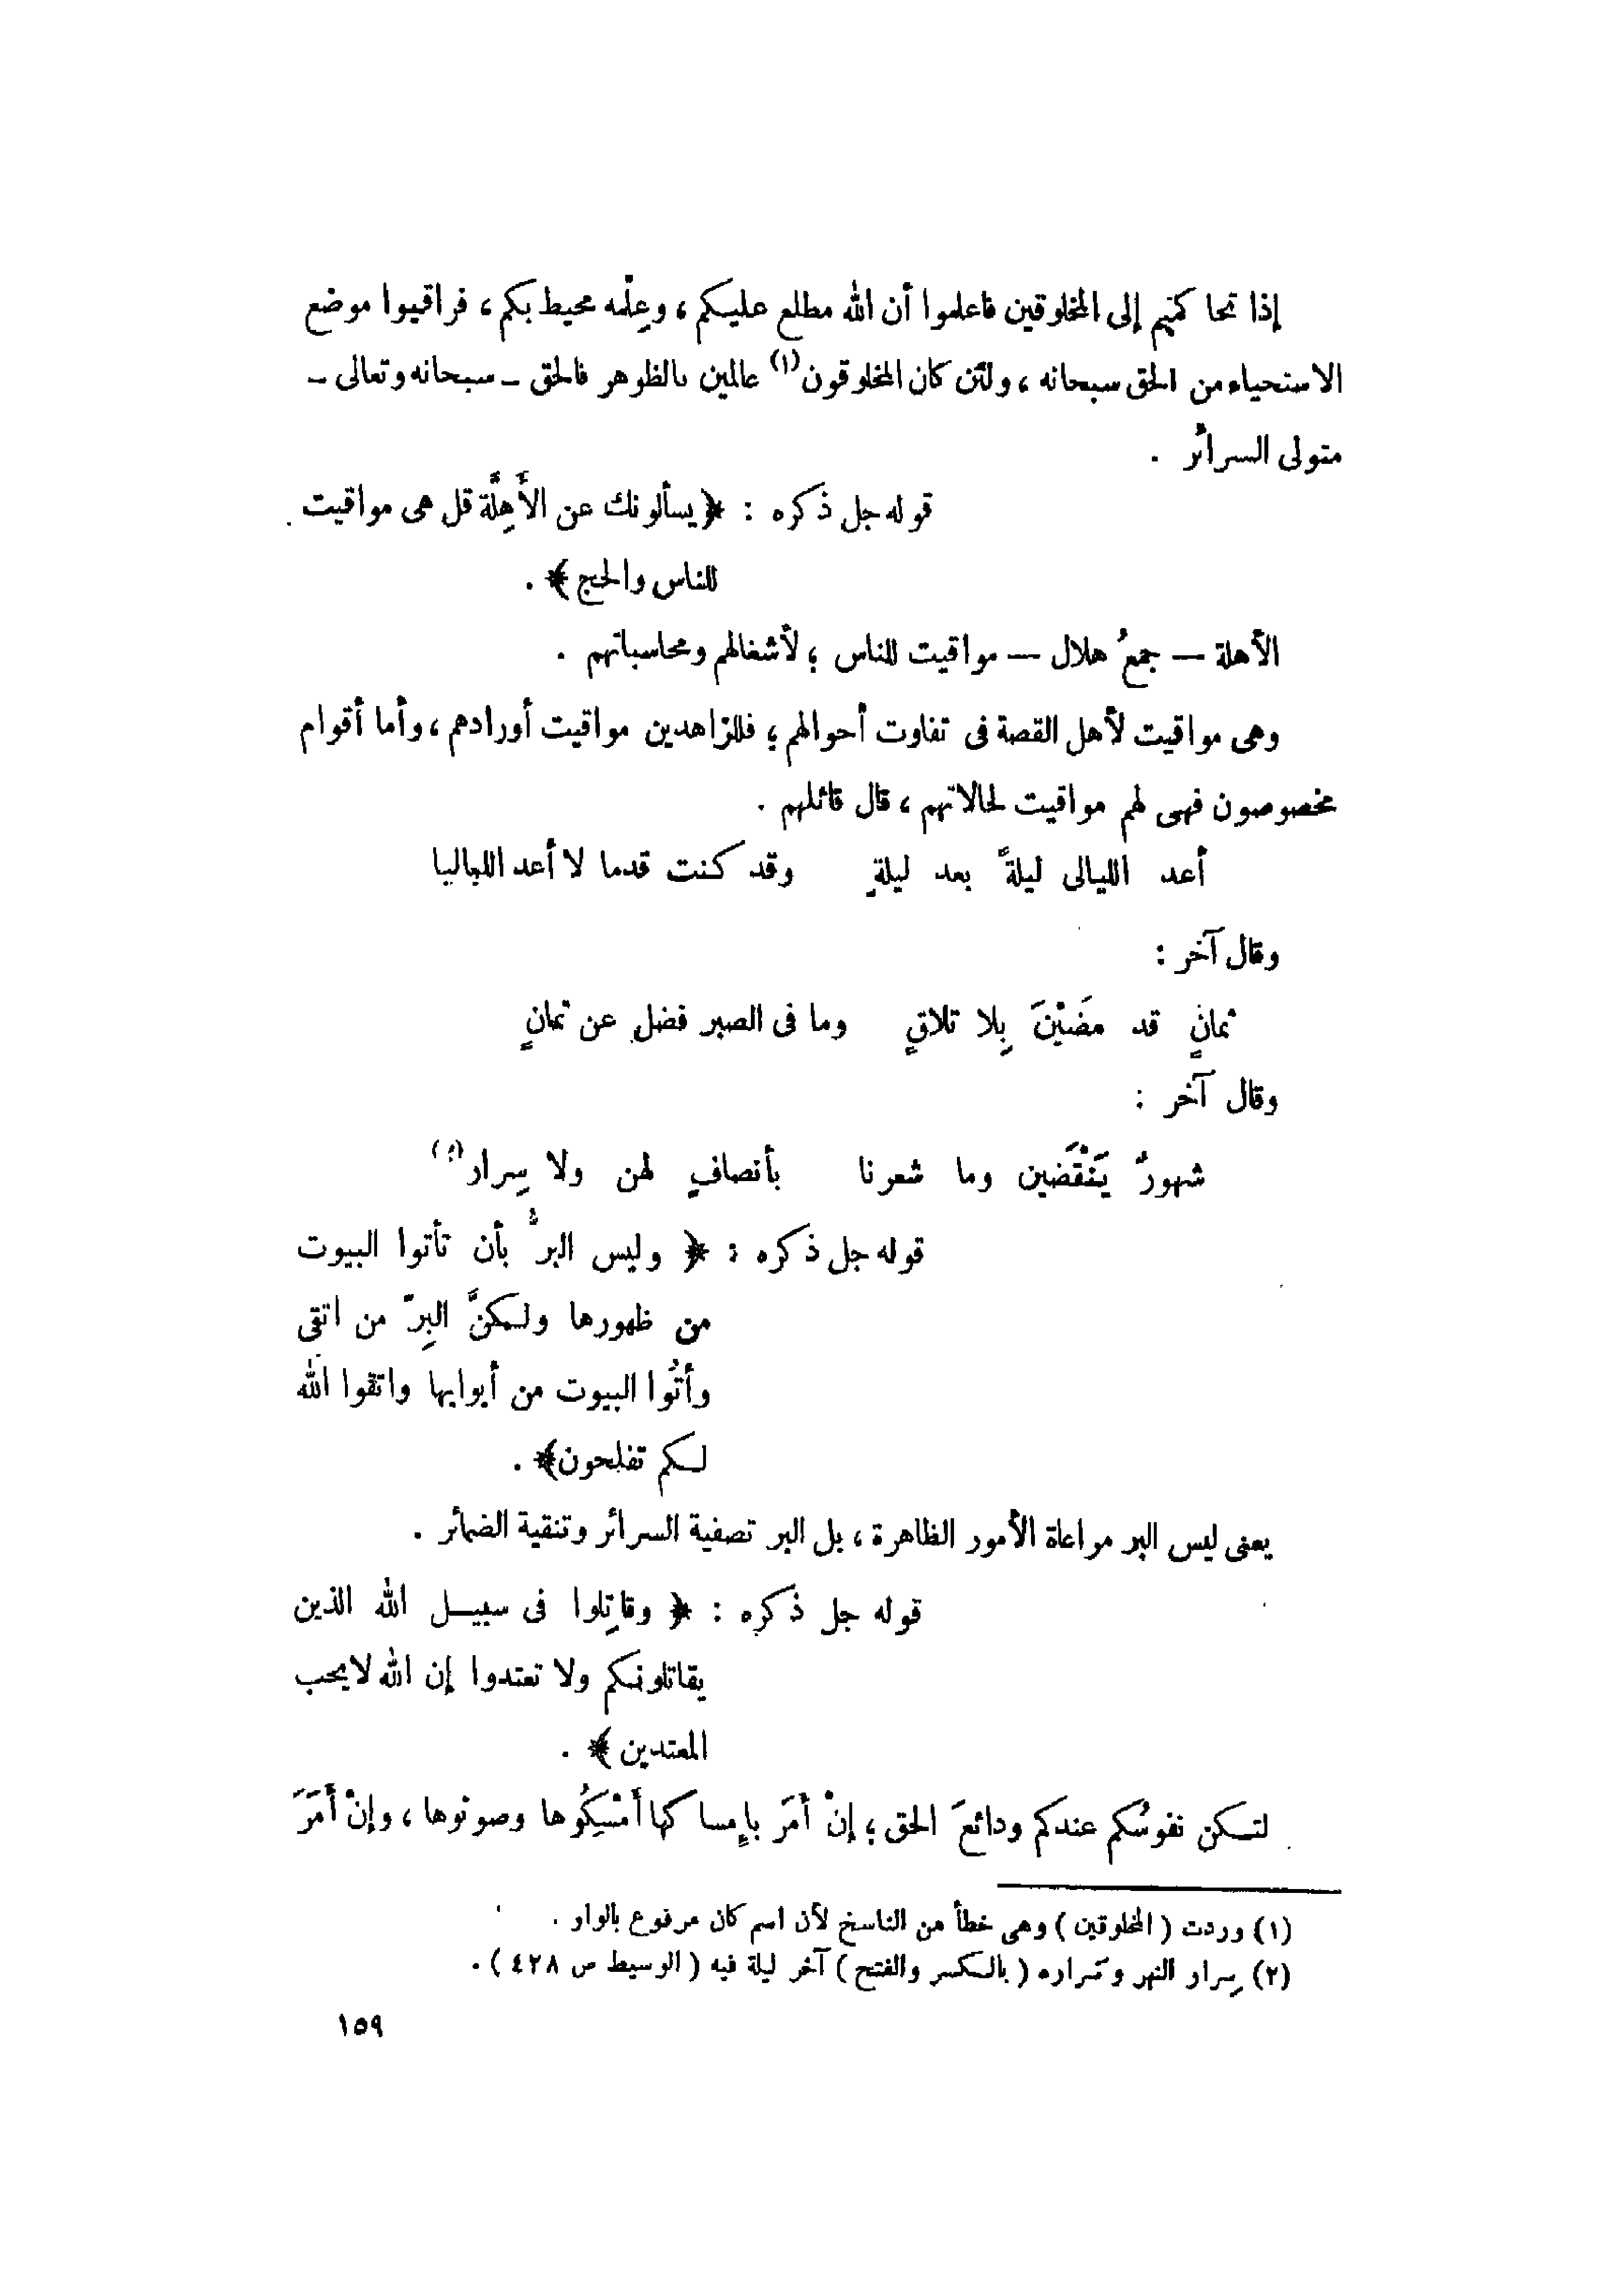 إذا تحاكمتم إلى المخلوقين فاعلموا أن الله مطلع عليكم ، وعِلْمه محيط بكم ، فراقبوا موضع
الاستحياء من الحق سبحانه ، ولئن كان المخلوقون(١) عالمين بالظوهر فالحق ـ سبحانه وتعالى ـ
متولى السرائر .
قوله جل ذكره : ﴿ يسألونك عن الأَهِلَّة قل هى مواقيت
للناس والحج ﴾ .
الأهلة — جمعُ هلال — مواقيت للناس ؛ لأشغالهم ومحاسباتهم .
وهى مواقيت لأهل القصة فى تفاوت أحوالهم ؛ فللزاهدين مواقيت أورادهم ، وأما أقوام
مخصوصون فهى لهم مواقيت لحالاتهم ، قال قائلهم .
أعد الليالى ليلةً بعد ليلةٍ وقد كنت قدما لا أعد اللياليا
وقال آخر :
ثمانٍ قد مضَيْنَ بِلا تلاقٍ وما فى الصبر فضل عن ثمانٍ
وقال آخر :
شهورٌ يَنْقَضين وما شعرنا بأنصافٍ لهن ولا سِرار(٢)
قوله جل ذكره : ﴿ وليس البرُّ بأن تأتوا البيوت
من ظهورها ولـكنَّ البِرّ من اتقى
وأتُوا البيوت من أبوابها واتقوا الله
لـكم تفلحون ﴾ .
يعنى ليس البر مراعاة الأمور الظاهرة ، بل البر تصفية السرائر وتنقية الضمائر .
قوله جل ذكره : ﴿ وقاتِلوا فى سبيــل الله الذين
يقاتلونـكم ولا تعتدوا إن الله لايحب
المعتدين ﴾ .
لتـكن نفوسُكم عندكم ودائعَ الحق ؛ إنْ أمَرَ بإمساكها أَمْسِكُوها وصونوها ، وإنْ أَمَرَ
(١) وردت ( المخلوقين ) وهى خطأ من الناسخ لأن اسم كان مرفوع بالواو .
(٢) سِرار النهر وسَراره ( بالـكسر والفتح ) آخر ليلة فيه ( الوسيط ص ٤٢٨ ) .
١٥٩